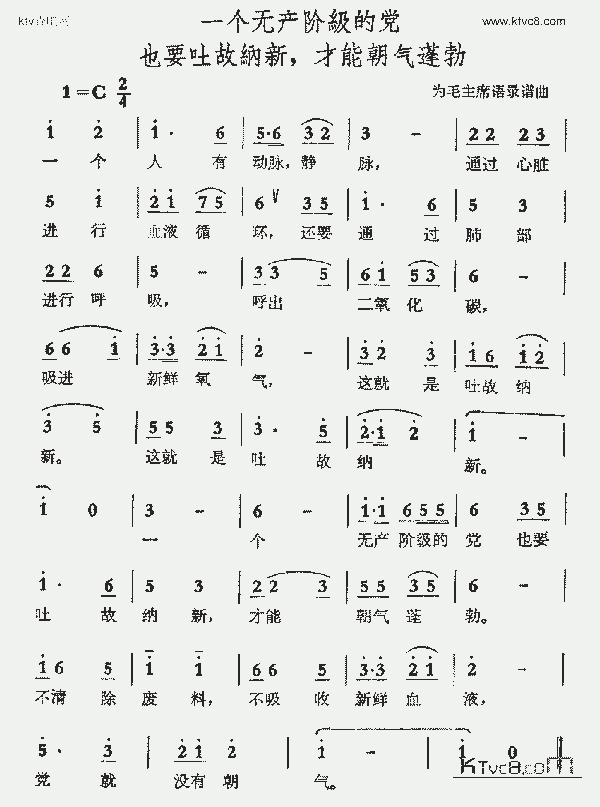 www.ktvc8.com
一个无产阶級的党
也要吐故納新，才能朝气蓬勃
1=C 2/4
为毛主席语录谱曲
i 2 | i· 6 | 5·6 3 2 | 3 - | 2 2 2 3
一个人有动脉，静脉，通过心脏
5 i | 2 i 7 5 | 6 V 3 5 | i· 6 | 5 3
进行血液循环，还要通过肺部
2 2 6 | 5 - | 3 3 5 | 6 i 5 3 | 6 -
进行呼吸，呼出二氧化碳，
6 6 i | 3·3 2 i | 2 - | 3 2 3 | i 6 i 2
吸进新鲜氧气，这就是吐故纳
3 5 | 5 5 3 | 3· 5 | 2·i 2 | i -
新。这就是吐故纳新。
i 0 | 3 - | 6 - | i·i 6 5 5 | 6 3 5
一个无产阶级的党也要
i· 6 | 5 3 | 2 2 3 | 5 5 3 5 | 6 -
吐故纳新，才能朝气蓬勃。
i 6 5 | i i | 6 6 5 | 3·3 2 i | 2 -
不清除废料，不吸收新鲜血液，
5· 3 | 2 i 2 | i - | i 0
党就没有朝气。
KTvc8.com